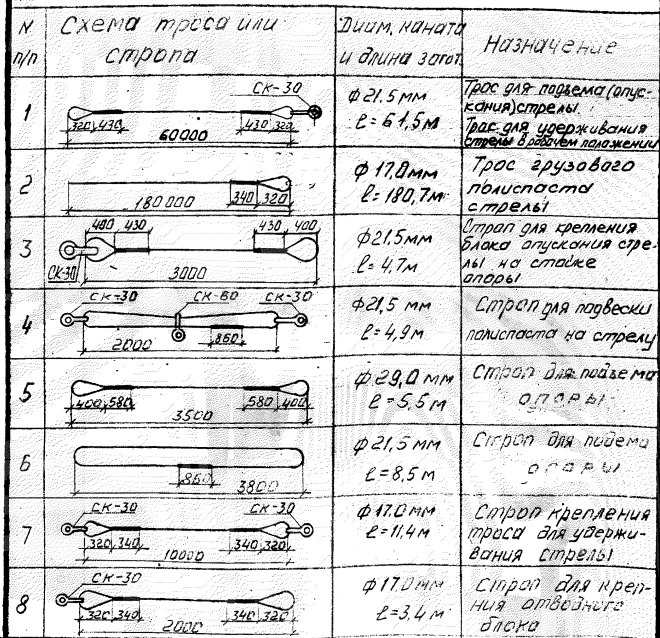 N п/п
Схема троса или стропа
Диам. каната и длина загот.
Назначение
1
СК-30
320 430
430 320
60000
ϕ21.5 мм
ℓ=61,5м
Трос для подъема (опус-
кания) стрелы.
Трос для удерживания
стрелы в рабочем положении
2
340 320
180000
ϕ 17,0мм
ℓ=180,7м
Трос грузового
полиспаста
стрелы
3
400 430
430 400
СК-30
3000
ϕ21.5мм
ℓ=4,7м
Строп для крепления
блока опускания стре-
лы на стойке
опоры
4
СК-30 СК-60 СК-30
2000
860
ϕ21,5 мм
ℓ=4,9м
Строп для подвески
полиспаста на стрелу
5
400 580
580 400
3500
ϕ29,0 мм
ℓ=5,5м
Строп для подъема
опоры
6
860
3800
ϕ21,5 мм
ℓ=8,5 м
Строп для подема
опоры
7
СК-30 СК-30
320 340
340 320
10000
ϕ17.0мм
ℓ=11,4м
Строп крепления
троса для удержи-
вания стрелы
8
СК-30
320 340
340 320
2000
ϕ17.0мм
ℓ=3,4м
Строп для креп-
ния отводного
блока